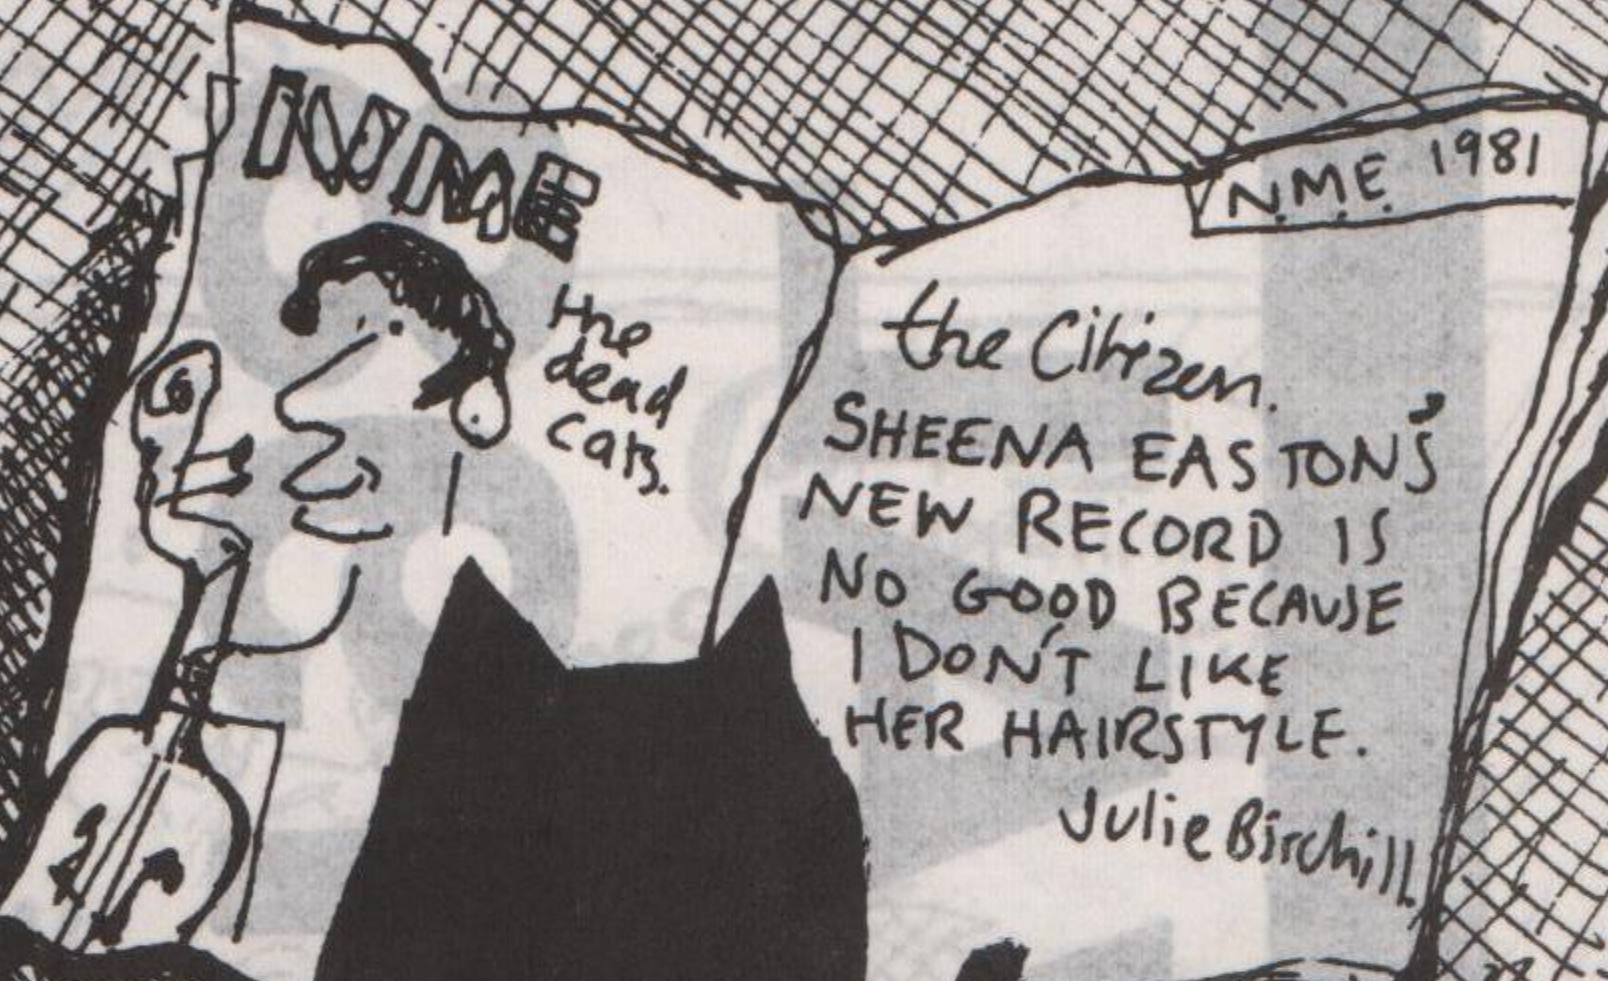 NME
the
dead
cats.
N.M.E. 1981
the Citizen.
SHEENA EASTON'S
NEW RECORD IS
NO GOOD BECAUSE
I DON'T LIKE
HER HAIRSTYLE.
Julie Birchill.